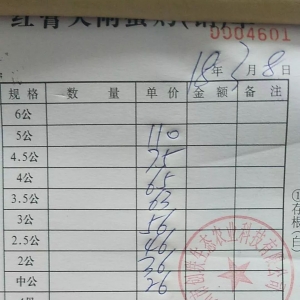 红膏大闸蟹
0004601
18年3月8日
规格 数量 单价 金额 备注
6公
5公 110
4.5公 75
4公 65
3.5公 63
3公 56
2.5公 46
2公 36
中公 26
①存根(白
生态农业科技有限公司